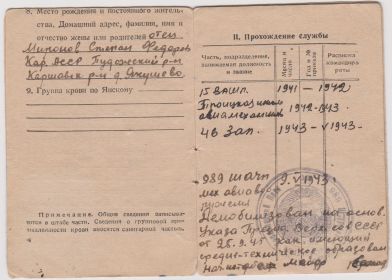 8. Место рождения и постоянного житель-
ства, Домашний адрес, фамилия, имя и
отчество жены или родителей отец
Миронов Степан Федоров
Кар. ССР Пудожский р-н
9. Группа крови по Янскому
Примечание. Общие сведения записыва-
ются в штабе части. Сведения о групповой при-
надлежности крови вносятся санитарной частью.
II. Прохождение службы
Часть, подразделение, занимаемая должность и звание
Месяц и число
Год и № приказа
Расписка командира роты
15 ВАШП. 1941 - 1942
Троицкая школа
авиамехаников 1942-1943
46 Зап. 1943 - V 1943
989 шап
мех авиавоо
ружения
Демобилизован на основ.
Указа През. Верх. Сов СССР
от 25.9.45 как имеющий
средне-техническое образован
майор